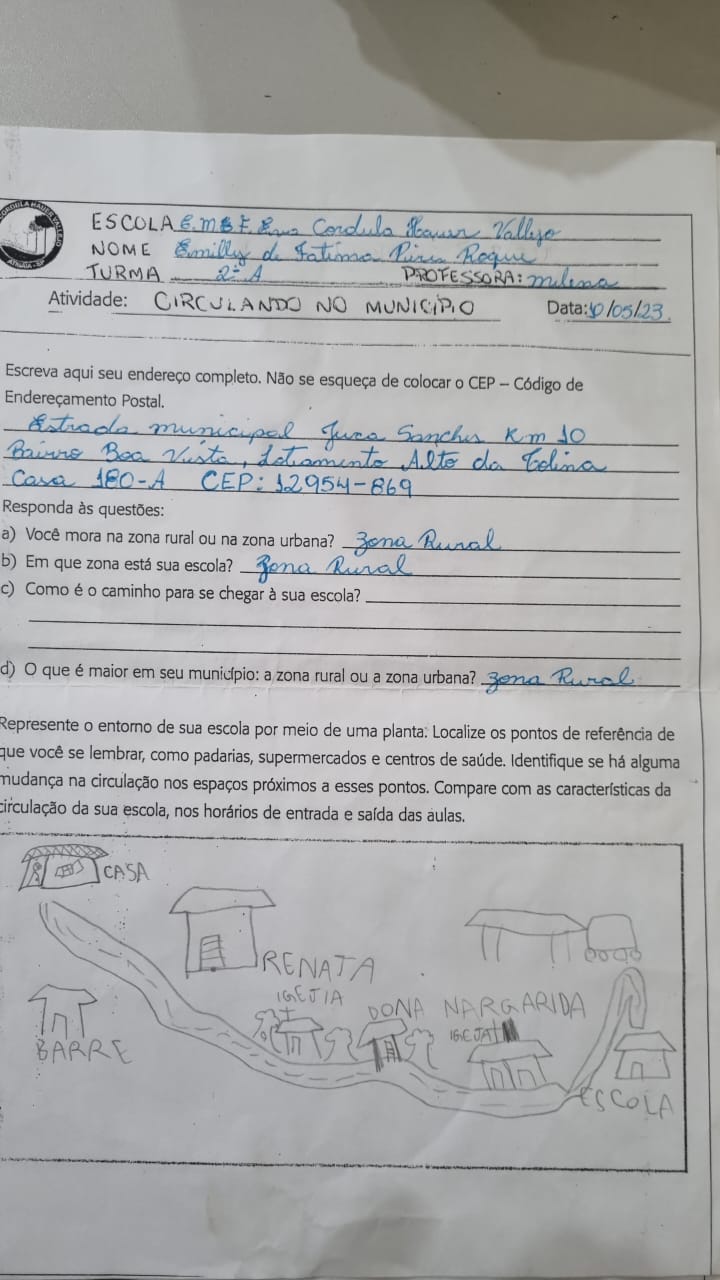 CORDULA HAUER VALLEJO
ATIBAIA - SP
ESCOLA E.M.E.F. Eva Cordula Hauer Vallejo
NOME Emilly de Fatima Pires Roque
TURMA 2º A PROFESSORA: milena
Atividade: CIRCULANDO NO MUNICÍPIO Data: 10/05/23.
Escreva aqui seu endereço completo. Não se esqueça de colocar o CEP – Código de
Endereçamento Postal.
Estrada municipal Juca Sanches Km 10
Bairro Boa Vista, Lotamento Alto da Colina
Casa 180-A CEP: 12954-869
Responda às questões:
a) Você mora na zona rural ou na zona urbana? Zona Rural
b) Em que zona está sua escola? Zona Rural
c) Como é o caminho para se chegar à sua escola?
d) O que é maior em seu município: a zona rural ou a zona urbana? Zona Rural
Represente o entorno de sua escola por meio de uma planta. Localize os pontos de referência de
que você se lembrar, como padarias, supermercados e centros de saúde. Identifique se há alguma
mudança na circulação nos espaços próximos a esses pontos. Compare com as características da
circulação da sua escola, nos horários de entrada e saída das aulas.
CASA
RENATA
IGEJIA
DONA NARGARIDA
IGEJA
BARRE
ESCOLA